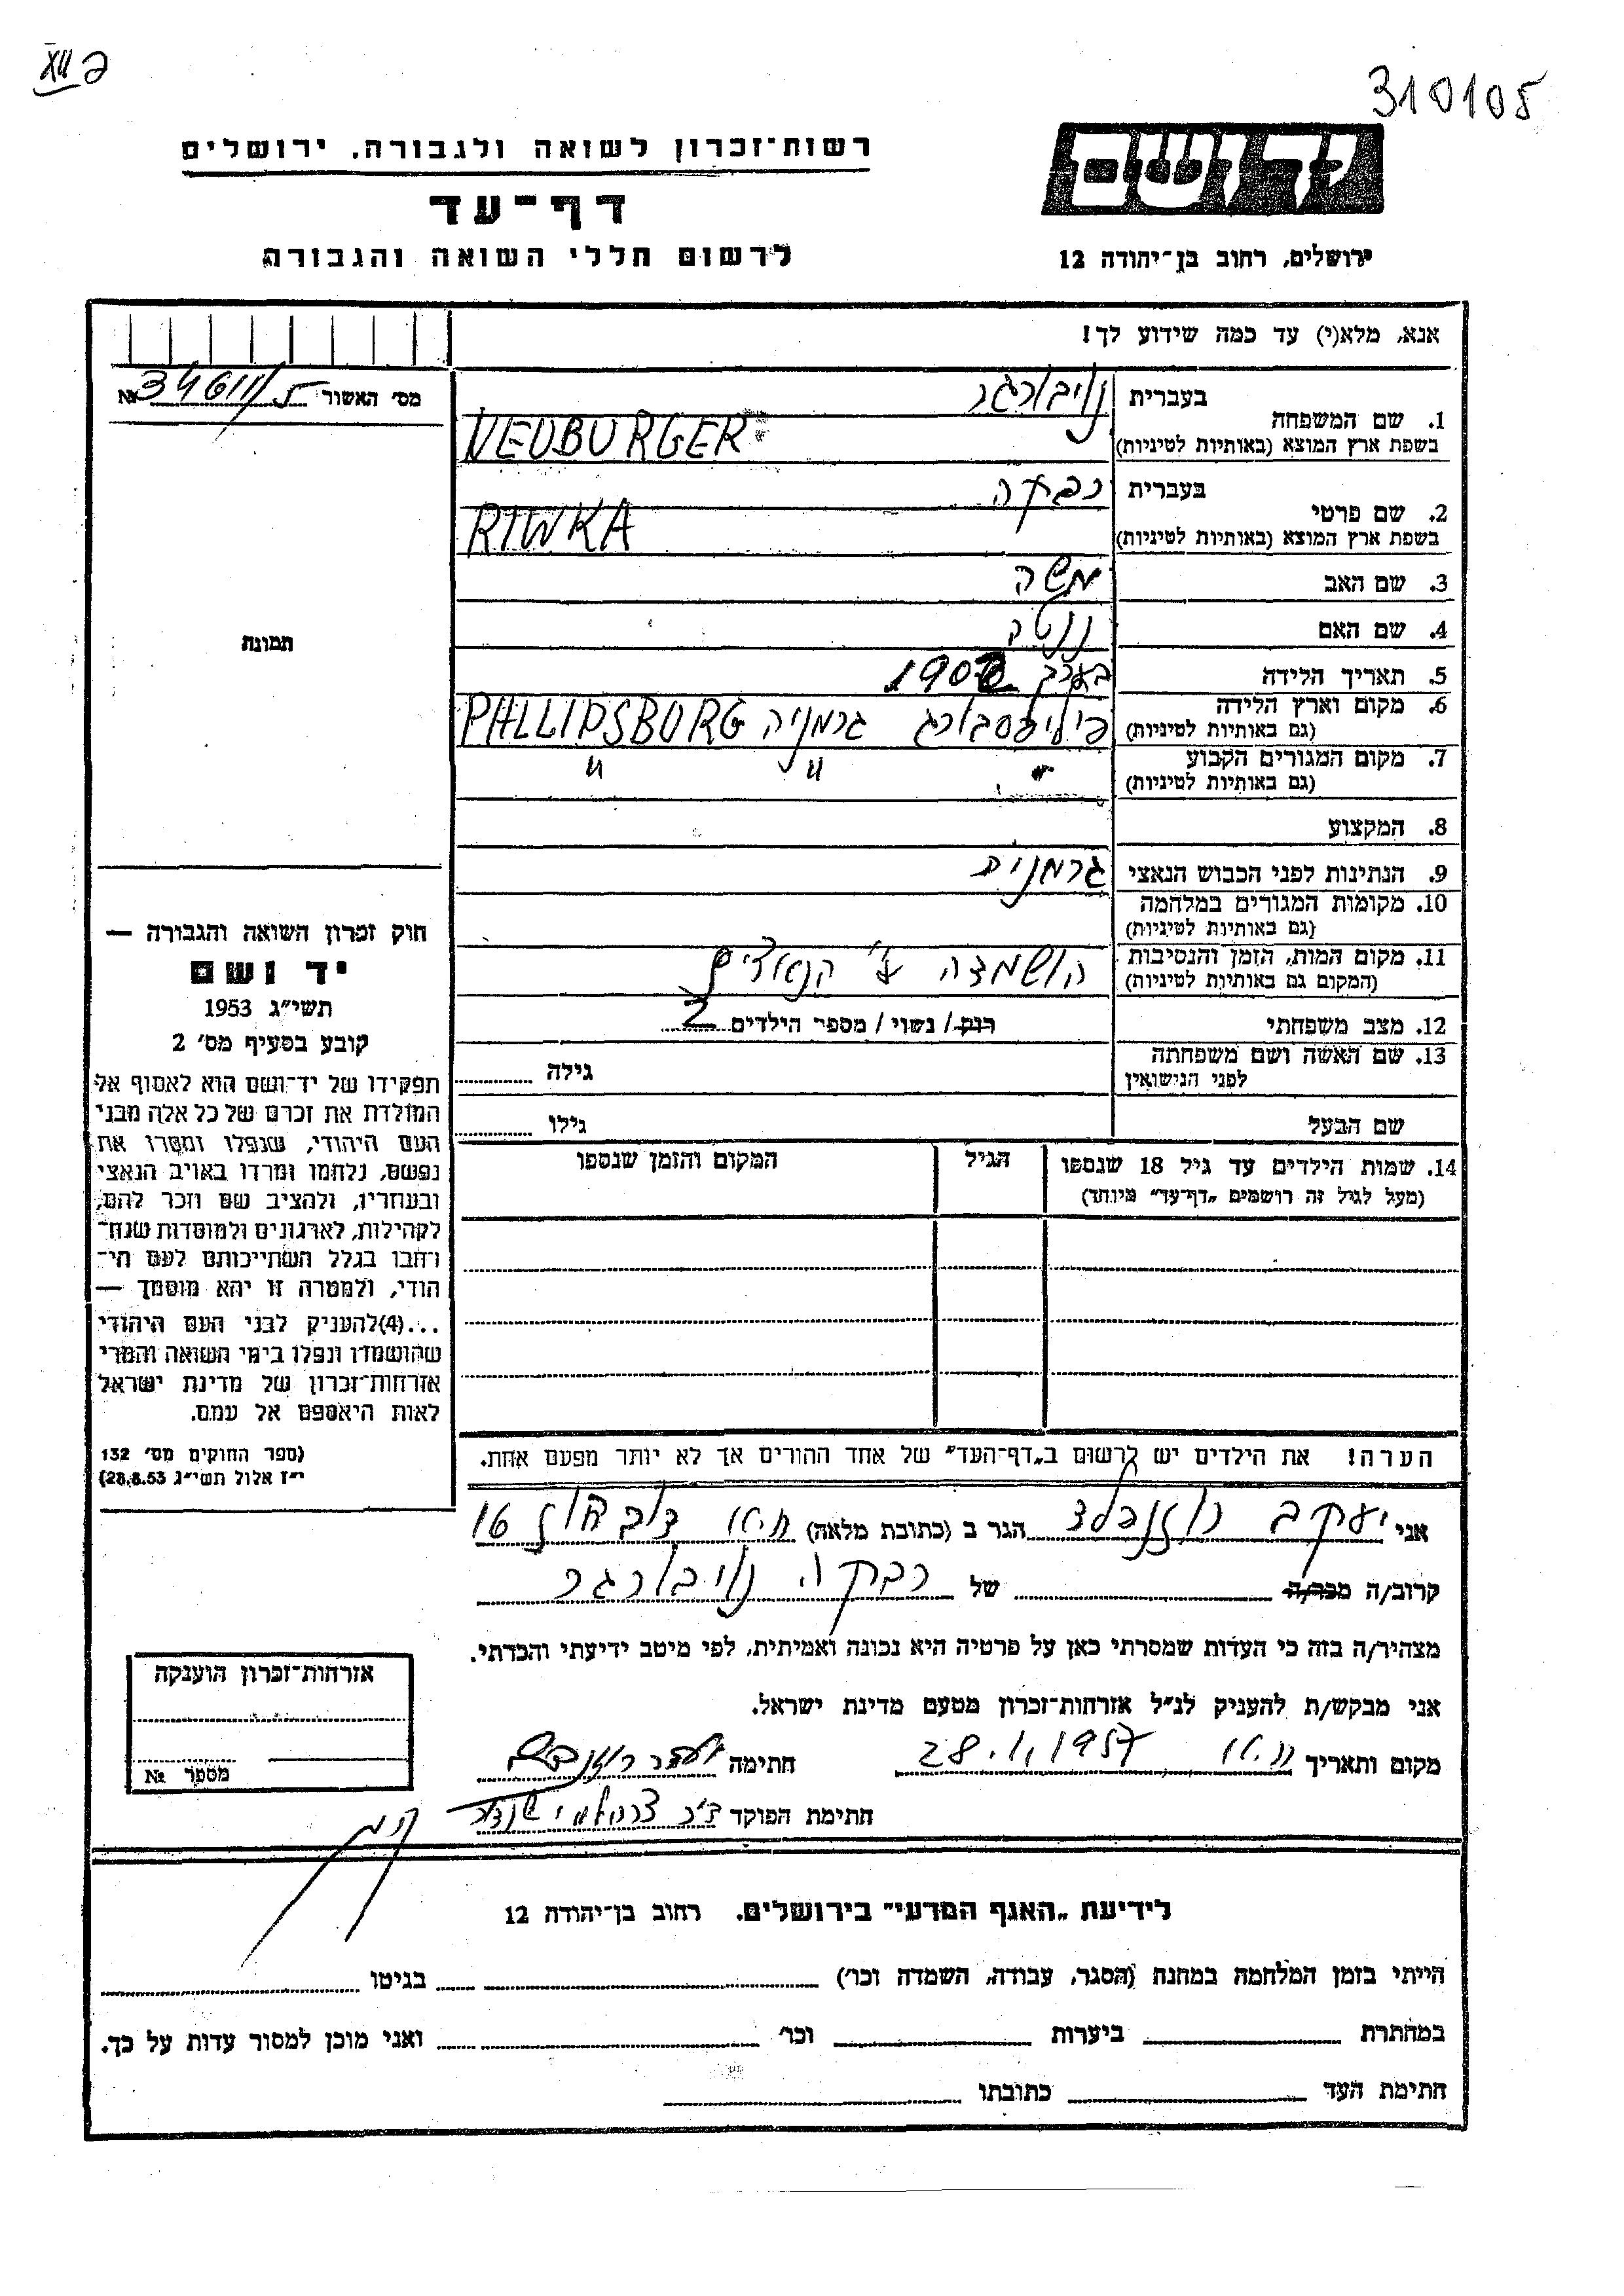 310105
XII
רשות־זכרון לשואה ולגבורה, ירושלים
דף־עד
לרשום חללי השואה והגבורה
יד ושם
ירושלים, רחוב בן־יהודה 12
אנא, מלא(י) עד כמה שידוע לך!
מס׳ האשור 34611/5 №
תמונה
1. שם המשפחה בעברית נויבורגר
בשפת ארץ המוצא (באותיות לטיניות) NEUBURGER
2. שם פרטי בעברית רבקה
בשפת ארץ המוצא (באותיות לטיניות) RIWKA
3. שם האב משה
4. שם האם ננטה
5. תאריך הלידה בערך 1902
6. מקום וארץ הלידה (גם באותיות לטיניות) פיליפסבורג גרמניה PHLLIPSBURG
7. מקום המגורים הקבוע (גם באותיות לטיניות) " " "
8. המקצוע
9. הנתינות לפני הכבוש הנאצי גרמנית
10. מקומות המגורים במלחמה (גם באותיות לטיניות)
11. מקום המות, הזמן והנסיבות (המקום גם באותיות לטיניות) הושמדה ע"י הנאצים
12. מצב משפחתי רוק / נשוי / מספר הילדים 2
13. שם האשה ושם משפחתה לפני הנישואין גילה
שם הבעל גילו
14. שמות הילדים עד גיל 18 שנספו הגיל המקום והזמן שנספו
(מעל לגיל זה רושמים „דף־עד" מיוחד)
הערה! את הילדים יש לרשום ב„דף־העד" של אחד ההורים אך לא יותר מפעם אחת.
חוק זכרון השואה והגבורה —
יד ושם
תשי״ג 1953
קובע בסעיף מס׳ 2
תפקידו של יד־ושם הוא לאסוף אל
המולדת את זכרם של כל אלה מבני
העם היהודי, שנפלו ומסרו את
נפשם, נלחמו ומרדו באויב הנאצי
ובעוזריו, ולהציב שם וזכר להם,
לקהילות, לארגונים ולמוסדות שנח־
רבו בגלל השתייכותם לעם הי־
הודי, ולמטרה זו יהא מוסמך —
...(4) להעניק לבני העם היהודי
שהושמדו ונפלו בימי השואה והמרי
אזרחות־זכרון של מדינת ישראל
לאות היאספם אל עמם.
(ספר החוקים מס׳ 132
י״ז אלול תשי״ג 28.8.53)
אני יעקב רוזנפלד הגר ב (כתובת מלאה) 16
קרוב/ה מכר/ה של רבקה נויבורגר
מצהיר/ה בזה כי העדות שמסרתי כאן על פרטיה היא נכונה ואמיתית, לפי מיטב ידיעתי והכרתי.
אני מבקש/ת להעניק לנ״ל אזרחות־זכרון מטעם מדינת ישראל.
מקום ותאריך 28.1.1957 חתימה
חתימת הפוקד
אזרחות־זכרון הוענקה
מספר №
לידיעת „האגף המדעי" בירושלים, רחוב בן־יהודה 12
הייתי בזמן המלחמה במחנה (הסגר, עבודה, השמדה וכו׳) בגיטו
במחתרת ביערות וכו׳ ואני מוכן למסור עדות על כך.
חתימת העד כתובתו